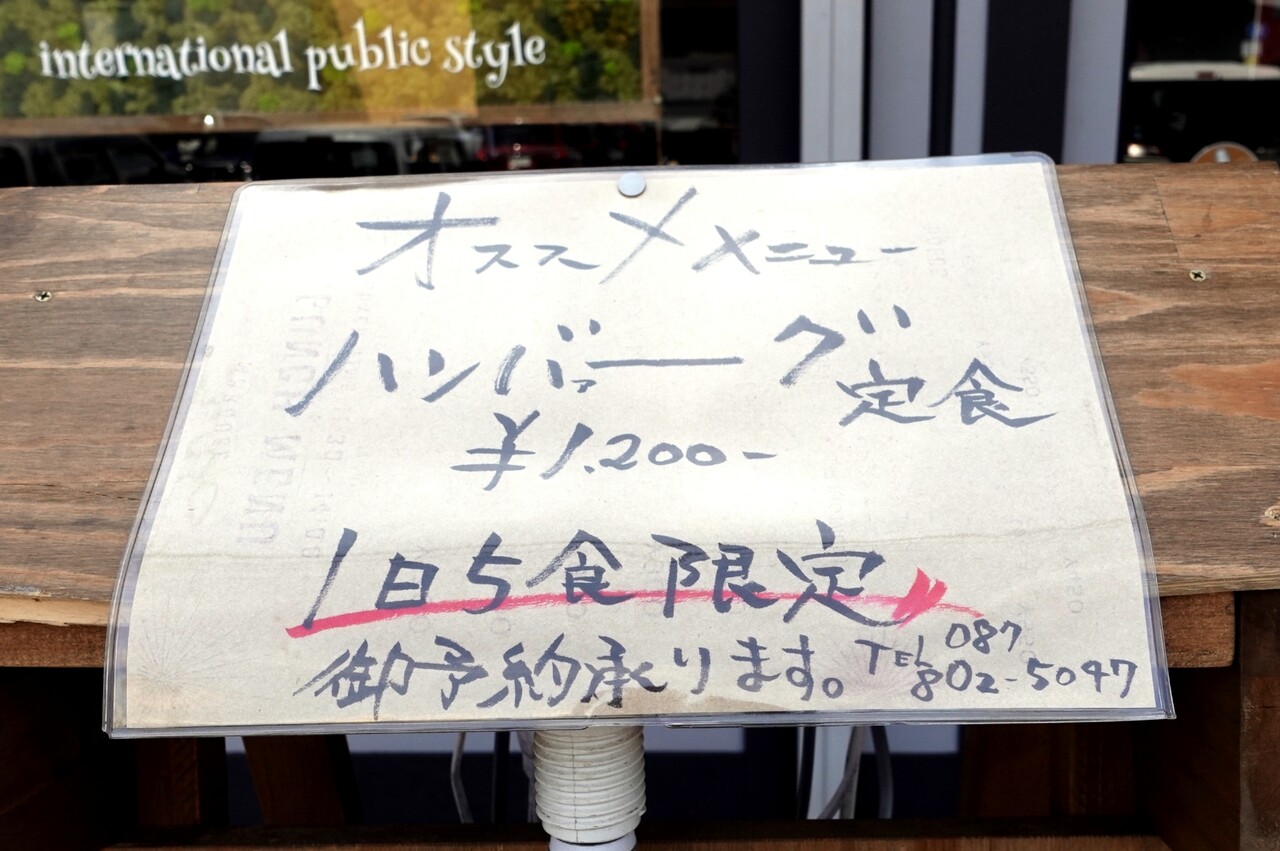 international public style
オススメメニュー
ハンバァーグ定食
¥1.200-
1日5食限定
御予約承ります。TEL 087
802-5047